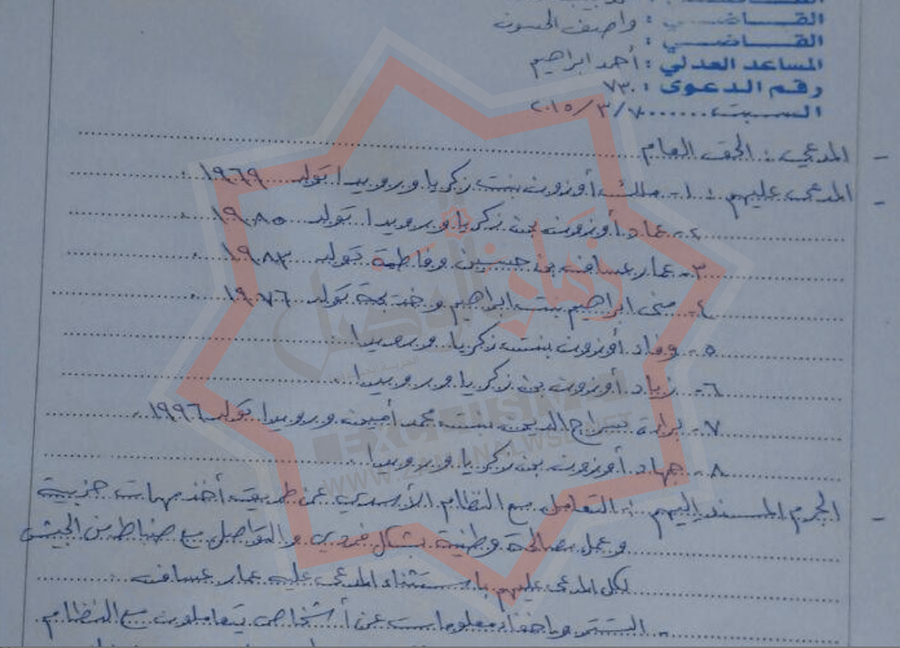 القـــاضـــي : واصف الحسون
القـــاضـــي :
المساعد العدلي : أحمد ابراهيم
رقم الدعوى : ٧٣٠
السبت ....... ٧/٣/٢٠١٥
- المدعي : الحق العام
- المدعى عليهم : ١- ملك أوزون بنت زكريا ورويدا تولد ١٩٦٩ .
٢- عماد أوزون بن زكريا ورويدا تولد ١٩٨٥ .
٣- عمار عساف بن حسين وفاطمة تولد ١٩٨٣ .
٤- منى ابراهيم بنت ابراهيم وخديجة تولد ١٩٧٦ .
٥- وفاد أوزون بنت زكريا ورويدا .
٦- زياد أوزون بن زكريا ورويدا .
٧- براءة سراج الدين بنت محمد أمين ورويدا تولد ١٩٩٦ .
٨- جهاد أوزون بن زكريا ورويدا .
- الجرم المسند إليهم : التعامل مع النظام الأسدي عن طريق أخذ مهمات حزبية
وعمل مصالحة وطنية بشكل فردي والتواصل مع ضباط من الجيش
لكل المدعى عليهم باستثناء المدعى عليه عمار عساف .
- التستر وإخفاء معلومات عن أشخاص يتعاملون مع النظام
زمان الوصل
EXCLUSIVE
WWW.ZAMANALWSL.NET